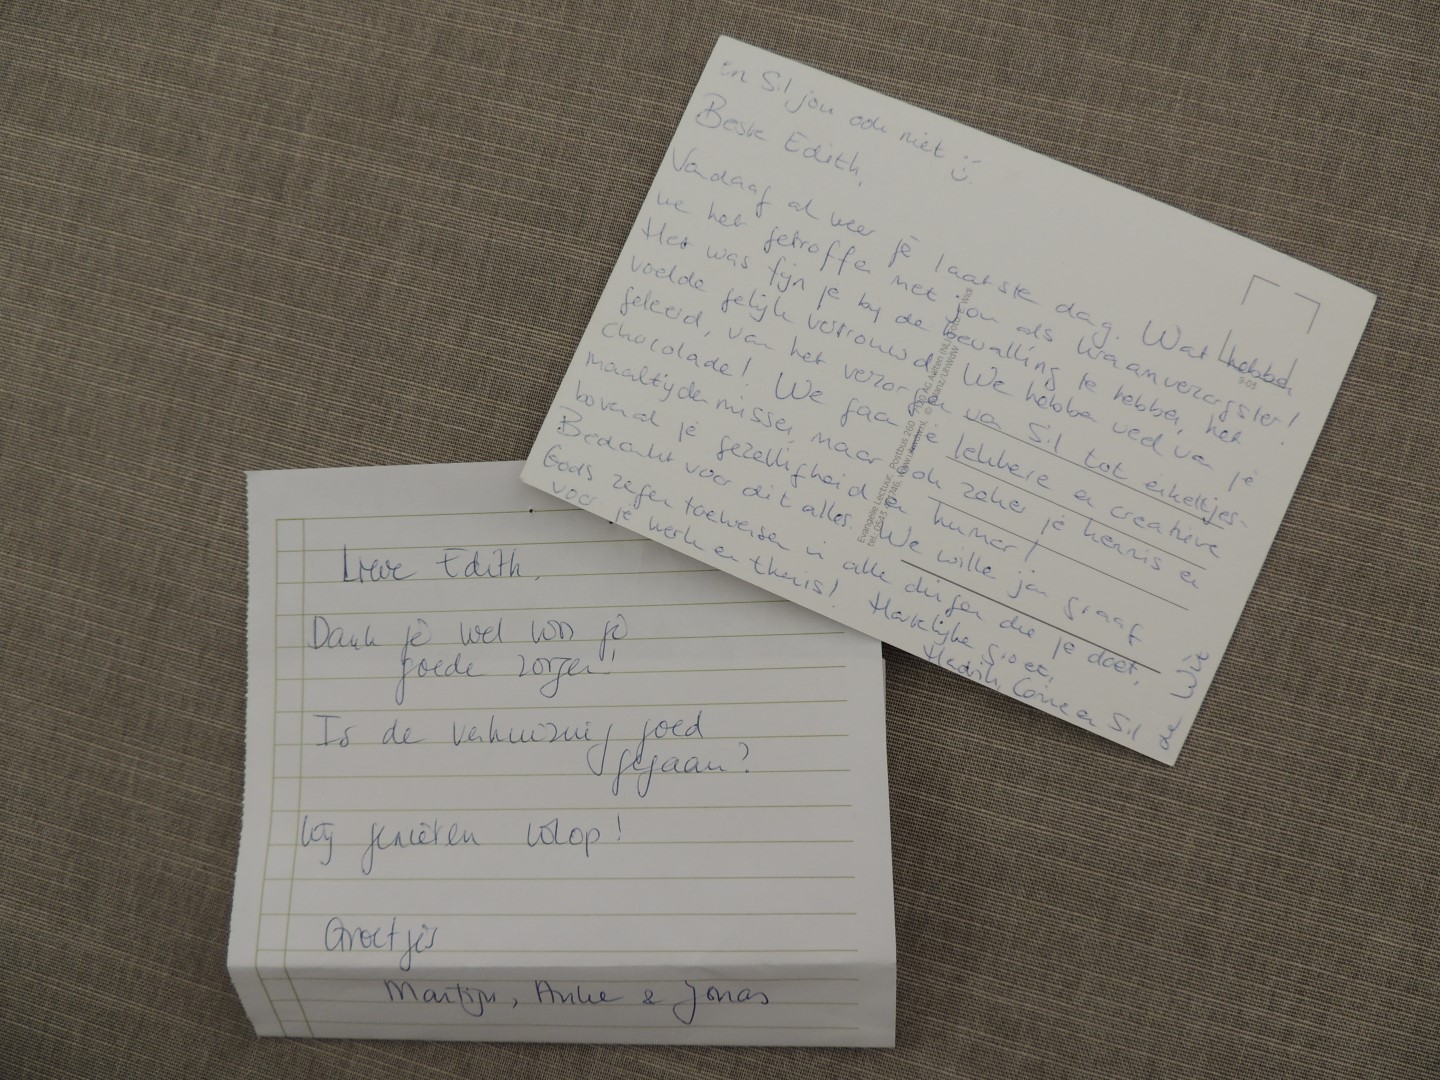 en Sil jou ook niet :)
Beste Edith,
Vandaag al weer je laatste dag. Wat hebben
we het getroffen met jou als kraamverzorgster!
Het was fijn je bij de bevalling te hebben, het
voelde gelijk vertrouwd. We hebben veel van je
geleerd, van het verzorgen van Sil tot enkeltjes-
chocolade! We gaan je lekkere en creatieve
maaltijden missen, maar ook zeker je kennis en
bovenal je gezelligheid en humor!
Bedankt voor dit alles. We willen jou graag
Gods zegen toewensen in alle dingen die je doet,
voor je werk en thuis! Hartelijke groet,
Corine en Sil
Evangelie Lectuur, Postbus 260, 7120 AG Aalten (NL)
9-03
Lieve Edith,
Dank je wel voor je
goede zorgen!
Is de verhuizing goed
gegaan?
Wij genieten volop!
Groetjes
Martijn, Anke & Jonas